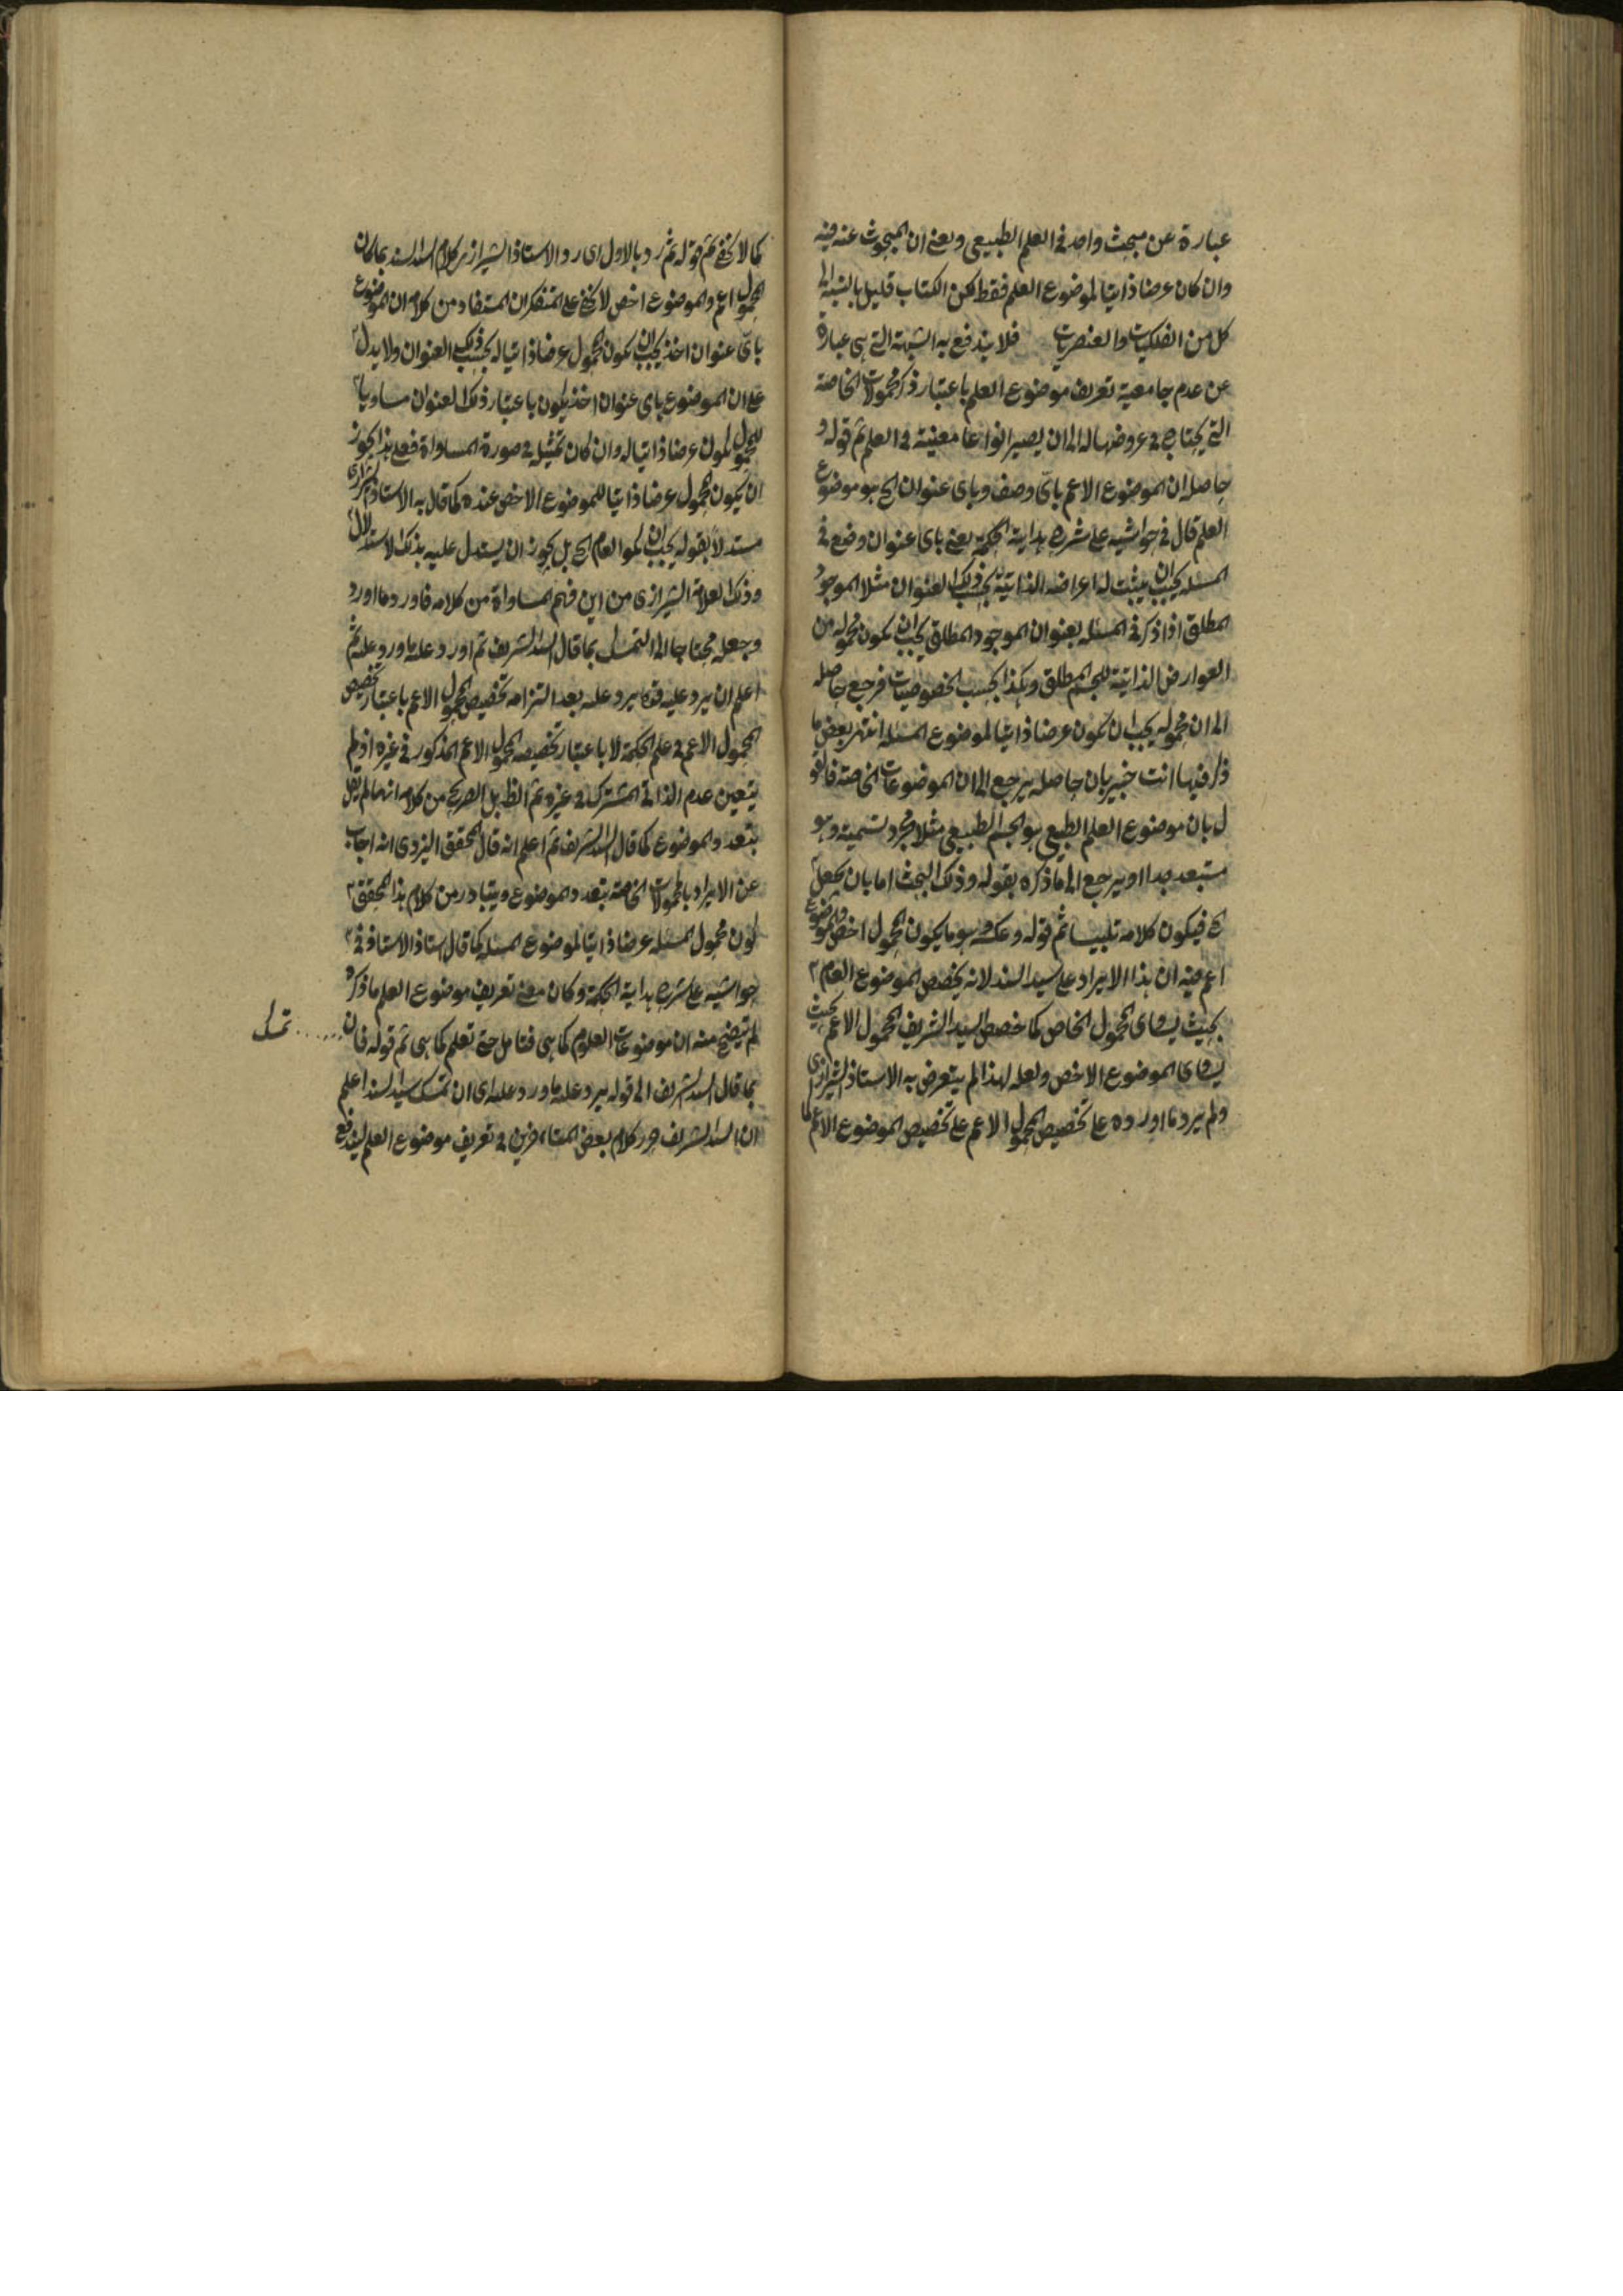 عبارة عن مبحث واحد فى العلم الطبيعى ويعنى ان المبحوث عنه فيه
وان كان عرضا ذاتيا لموضوع العلم فقط لكن الكتاب قليل بالنسبة الى
كل من الفلكيات والعنصريات فلا يندفع به الشبهة التى هى عبارة
عن عدم جامعية تعريف موضوع العلم باعتبار ذكر محمولات الخاصة
التى يحتاج فى عروضها له الى ان يصير انواعا معنية فى العلم ثم قوله و
حاصله ان الموضوع الاعم باىّ وصف وباى عنوان الخ هو موضوع
العلم قال فى حواشيه على شرح هداية الحكمة يعنى باى عنوان وضع فى
المسئله يجب ان يثبت له اعراضه الذاتية بحسب ذلك العنوان مثلا الموجود
المطلق اذا ذكر فى المسئله بعنوان الموجود المطلق يجب ان يكون محموله من
العوارض الذاتية للجسم المطلق وهكذا بحسب الخصوصيات فرجع حاصله
الى ان محموله يجب ان يكون عرضا ذاتيا لموضوع المسئله انتهى بعض ما
ذكر فيها انت خبير بان حاصله يرجع الى ان الموضوعات الخاصة فالقو
ل بان موضوع العلم الطبيعى هو الجسم الطبيعى مثلا مجرد تسمية وهو
مستبعد جدا او يرجع الى ما ذكره بقوله وذلك البحث اما بان يجعل
الخ فيكون كلامه تلبيسا ثم قوله وعكسه وهو ما يكون المحمول اخص والموضوع
اعم فيه ان هذا الايراد على سيد السند لانه يخصص الموضوع العام
بحيث يساوى المحمول الخاص كما خصص السيد الشريف المحمول الاعم بحيث
يساوى الموضوع الاخص ولعله لهذا لم يتعرض به الاستاذ الشيرازى
ولم يرد ما اورده على تخصيص المحمول الاعم على تخصيص الموضوع الاعم
كما لا يخفى ثم قوله ثم رد بالاول اى رد الاستاذ الشيرازى كلام السيد السند بما كان
المحمول اعم والموضوع اخص لا يخفى على المتفكر ان المستفاد من كلامه ان الموضوع
باىّ عنوان اخذ يجب ان يكون المحمول عرضا ذاتيا له بحسب ذلك العنوان ولا يدل
على ان الموضوع باى عنوان اخذ يكون باعتبار ذلك العنوان مساويا
للمحمول لكون عرضا ذاتيا له وان كان تمثيله فى صورة المساواة فعلى هذا يجوز
ان يكون المحمول عرضا ذاتيا للموضوع الاخص عنده كما قال به الاستاذ الشيرازى
مستدلا بقوله يجب ان العام الخ بل يجوز ان يستدل عليه بذلك الاستدلال
وذلك العلامة الشيرازى من اين فهم المساواة من كلامه فاورد ما اورد
وجعله محتاجا الى التمسك بما قال السيد الشريف ثم اورد عليه ما ورد عليه ثم
اعلم ان يرد عليه يرد عليه بعد التزامه تخصيص المحمول الاعم باعتبار تخصيص
المحمول الاعم فى علم الحكمة لا باعتبار تخصيصه المحمول الاعم المذكور فى غيره اذ لم
يتعين عدم الذاتى المشترك فى غيره ثم الظ بل الصريح من كلامه انه لم يقل
بتعدد الموضوع كما قال السيد الشريف ثم اعلم انه قال المحقق اليزدى انه اجاب
عن الايراد بالمحمولات الخاصة بتعدد الموضوع ويتبادر من كلام هذا المحقق
كون محمول المسئله عرضا ذاتيا لموضوع المسئله كما قال استاذ الاستاذ فى
حواشيه على شرح هداية الحكمة وكان معنى تعريف موضوع العلم ما ذكره
لم يتضح منه ان موضوعات العلوم كما هى فتامل حتى تعلم كما هى ثم قوله فان
..... تمسك
بما قال السيد الشريف الى قوله يرد عليه ما ورد عليه اى ان تمسك سيد السند اعلم
ان السيد الشريف حرر كلام بعض المتاخرين فى تعريف موضوع العلم ليندفع